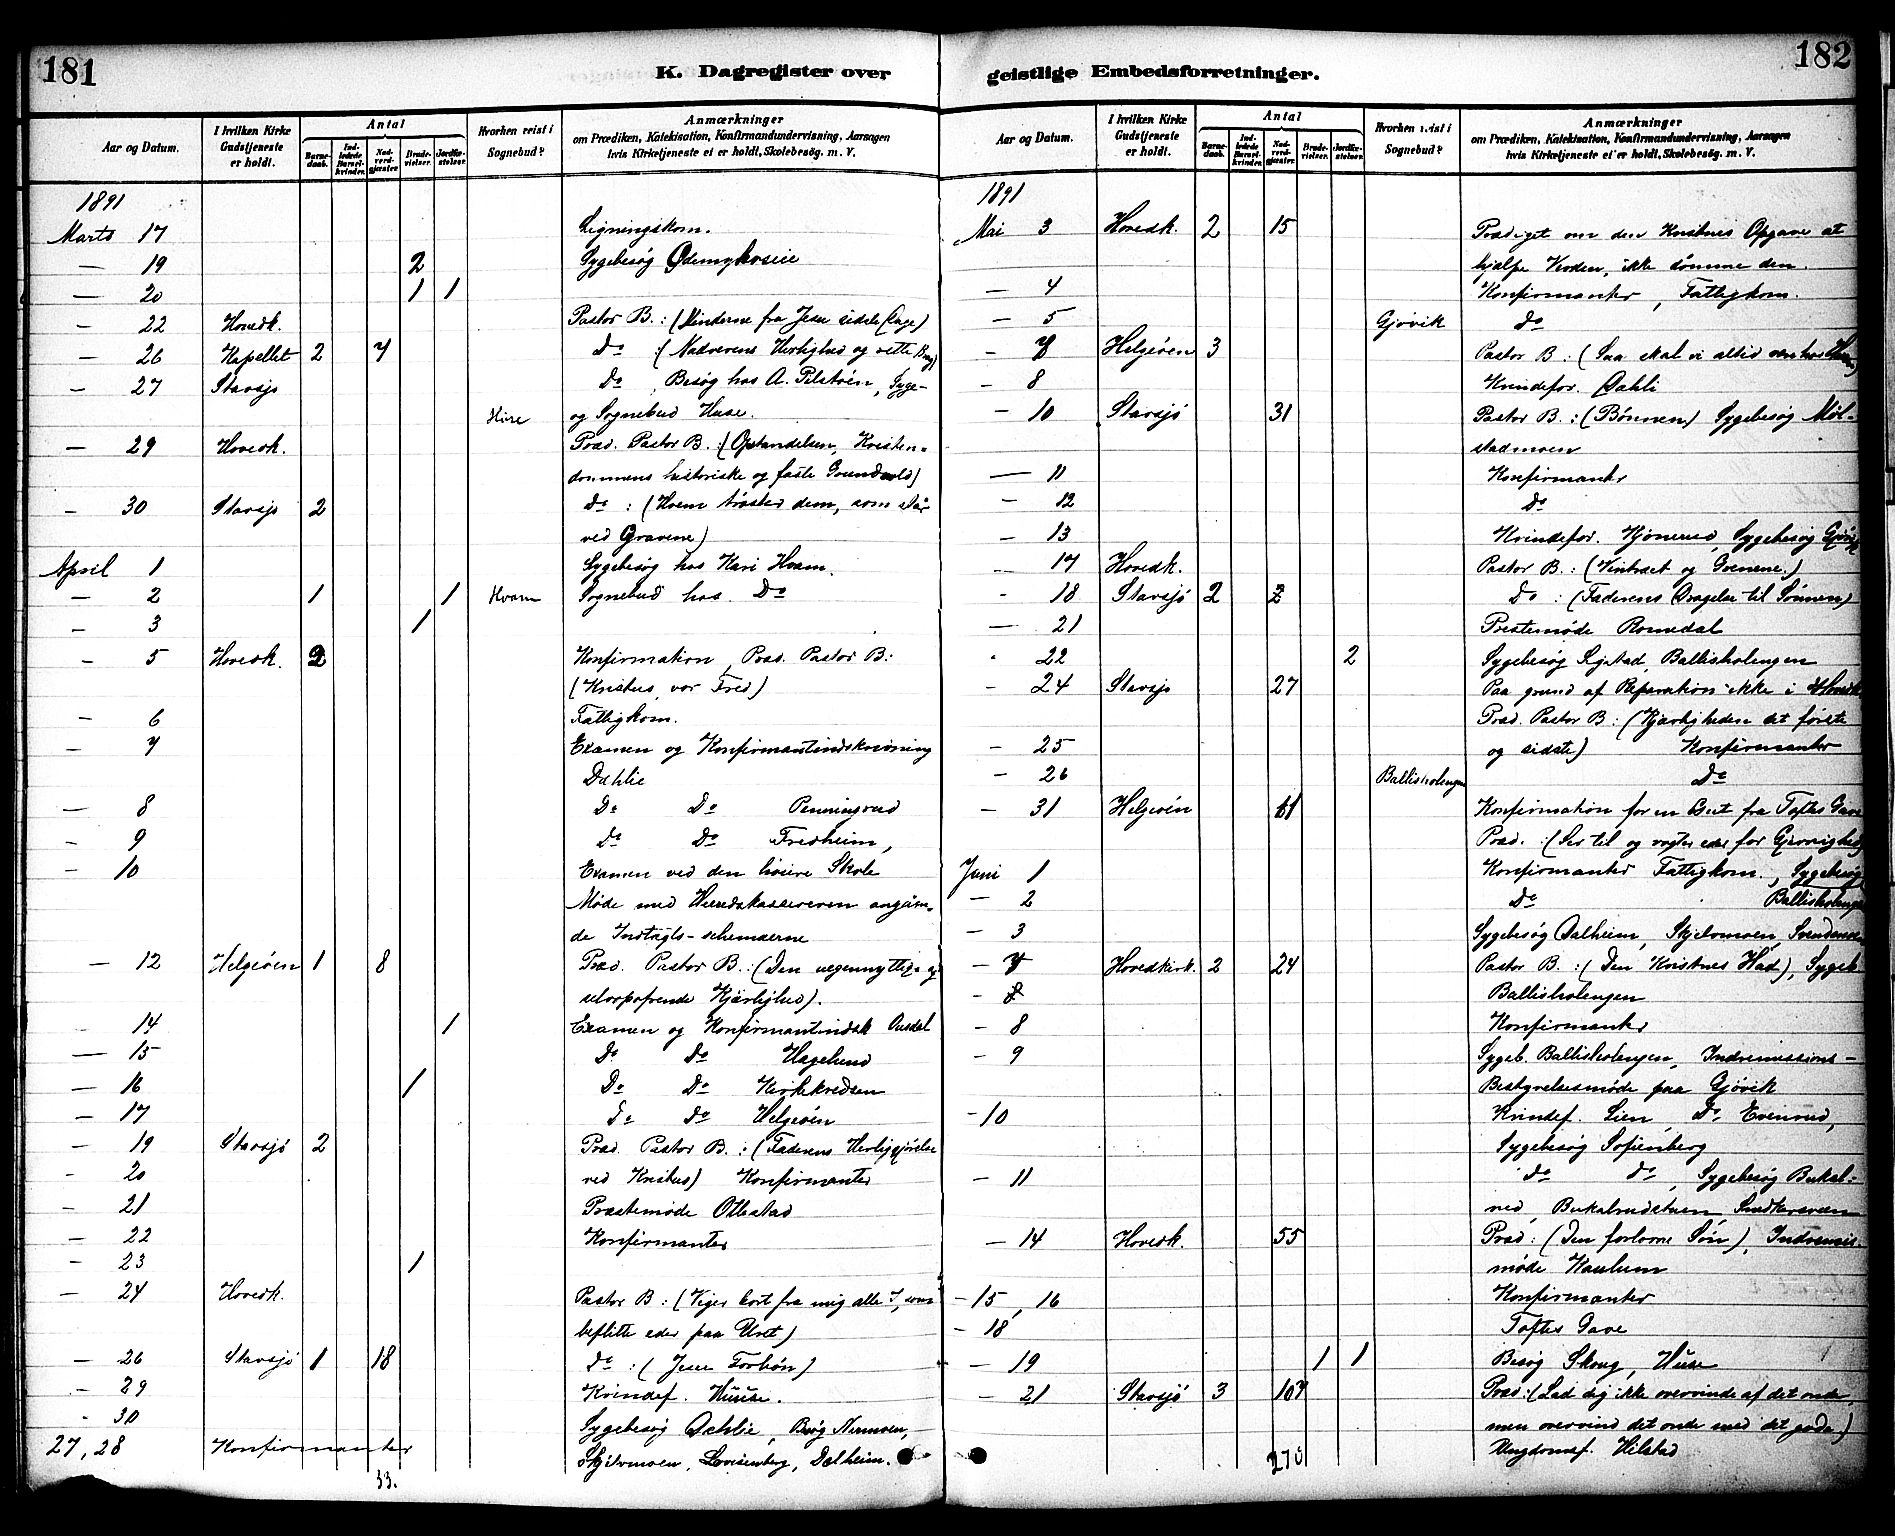 181
K. Dagregister over
Aar og Datum.
I hvilken Kirke Gudstjeneste er holdt.
Antal
Barnedaab.
Indledede Barselkvinder.
Nadverdgjæster.
Brudevielser.
Jordfæstelser.
Hvorhen reist i Sognebud?
Anmærkninger
om Prædiken, Katekisation, Konfirmandundervisning, Aarsagen
hvis Kirketjeneste ei er holdt, Skolebesøg. m. V.
1891
Marts 17 Ligningskom.
— 19 2 Sygebesøg Ødemyhrseie
— 20 1 1
— 22 Hovedk. Pastor B.: (Minderne fra Jesu sidste Dage)
— 26 Kapellet 2 7 Do (Nadverens Herlighed og rette Brug)
— 27 Stavsjø Do, Besøg hos A. Pilstøen, Syge-
Huse og Sognebud Huse.
— 29 Hovedk. Præd. Pastor B.: (Opstandelsen, Kristen-
dommens historiske og faste Grundvold)
— 30 Stavsjø 2 Do : (Hvem trøster dem, som står
ved Gravene)
April 1 Sygebesøg hos Kari Hvam.
— 2 1 1 Hvam Sognebud hos Do
— 3 1
— 5 Hovedk. 2 Konfirmation, Præd. Pastor B:
(Kristus, vor Fred)
— 6 Fattigkom.
— 7 Examen og Konfirmantindskrivning
Dahlie
— 8 Do Do Penningsrud
— 9 Do Do Fredheim,
— 10 Examen ved den høiere Skole
Møde med Herredskassereren angåen-
de Indtægts-schemaerne
— 12 Helgeøen 1 8 Præd. Pastor B.: (Den uegennyttige og
selvopofrende Kjærlighed).
— 14 1 Examen og Konfirmantindsk
— 15 Do Do Hagelund
— 16 1 Do Do Kirkekredsen
— 17 Do Do Helgeøen
— 19 Stavsjø 2 Præd. Pastor B.: (Faderens Herliggjørelse
— 20 ved Kristus) Konfirmanter
— 21 Præstemøde Ottestad
— 22 Konfirmanter
— 23 1
— 24 Hovedk. Pastor B: (Viger bort fra mig alle I, som
beflitte eder paa Uret)
— 26 Stavsjø 1 18 Do : (Jesu Forbøn)
— 29 Kvindef. Huuse.
— 30 Sygebesøg Dehlie,
27, 28 Konfirmanter Skjelvmoen, Lovisenberg, Dalheim.
33.
182
geistlige Embedsforretninger.
Aar og Datum.
I hvilken Kirke Gudstjeneste er holdt.
Antal
Barnedaab.
Indledede Barselkvinder.
Nadverdgjæster.
Brudevielser.
Jordfæstelser.
Hvorhen reist i Sognebud?
Anmærkninger
om Prædiken, Katekisation, Konfirmandundervisning, Aarsagen
hvis Kirketjeneste ei er holdt, Skolebesøg. m. V.
1891
Mai 3 Hovedk. 2 15 Prædiget om den Kristnes Opgave at
hjælpe Verden, ikke dømme den.
— 4 Konfirmanter, Fattigkom.
— 5 Gjøvik Do
— 7 Helgeøen 3 Pastor B: (Saa skal vi altid være hos Ham)
— 8 Kvindefor. Dahli
— 10 Stavsjø 31 Pastor B.: (Bønnen) Sygebesøg Møl-
stadmoen
— 11 Konfirmanter
— 12 Do
— 13 Kvindefor. Kjønerud, Sygebesøg Gjøvik
— 17 Hovedk. Pastor B.: (Vintræet og Grenene.)
— 18 Stavsjø 2 2 Do : (Faderens Dragelse til Sønnen)
— 21 Prestemøde Romedal
— 22 2 Sygebesøg Sejstad, Ballisholengen
— 24 Stavsjø 27 Paa grund af Reparation ikke i Hovedk
Præd. Pastor B: (Kjærligheden det første
— 25 og sidste) Konfirmanter
— 26 Ballisholengen Do
— 31 Helgeøen 61 Konfirmation for en Gut fra Toftes Gave
Præd.: (Ser til og vogter eder for Gjerrighed)
Juni 1 Konfirmanter Fattigkom., Sygebesøg
— 2 Do Ballisholengen
— 3 Sygebesøg Dalheim, Skjelvmoen,
— 7 Hovedkirk. 2 24 Pastor B.: (Den Kristnes Had), Sygeb.
— 8 Ballisholengen
— 8 Konfirmanter
— 9 Sygeb. Ballisholengen, Indremissions-
Bestyrelsesmøde paa Gjøvik
— 10 Kvindef. Lien, Do Evenrud,
Sygebesøg Sofienberg
— 11 do do, Sygebesøg Bukal-
rud, Bukalrudstuen,
— 14 Hovedk. 55 Præd: (Den forlorne Søn), Indremis.
møde Kaulum
— 15, 16 Konfirmanter
— 18 Toftes Gave
— 19 1 1 Besøg Skoug, Huse
— 21 Stavsjø 3 107 Præd: (Lad dig ikke overvinde af det onde,
men overvind det onde med det gode)
270 Ungdomsf. Hilstad